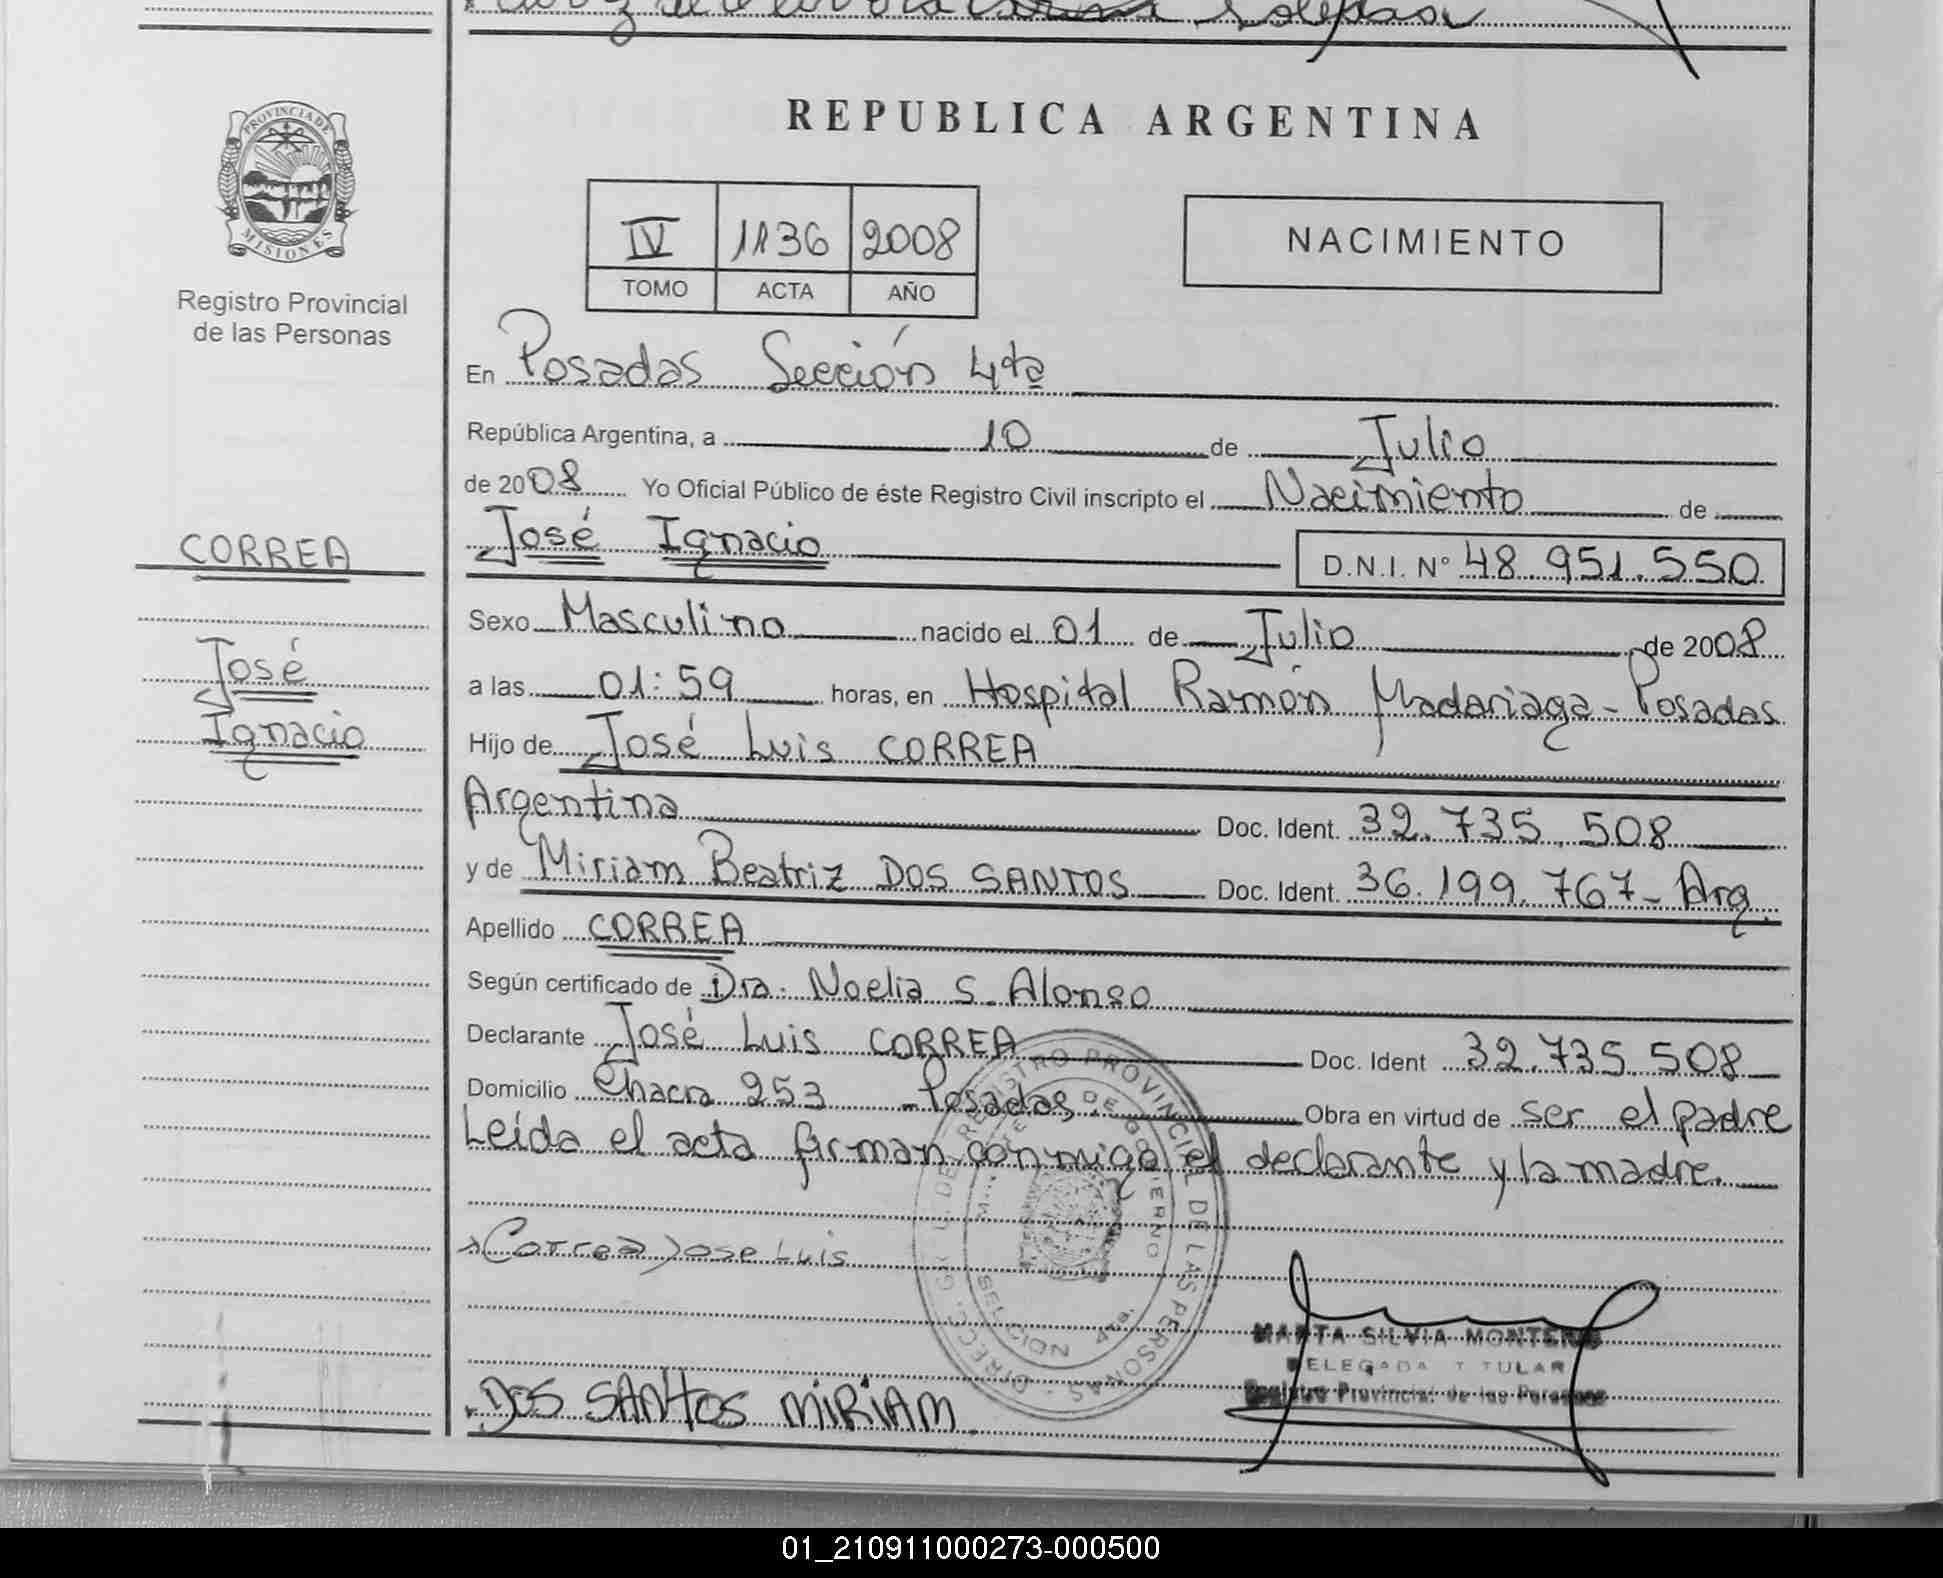 Soledad
PROVINCIA DE
MISIONES
Registro Provincial
de las Personas
REPUBLICA ARGENTINA
IV 1136 2008
TOMO ACTA AÑO
NACIMIENTO
En Posadas Sección 4ta
República Argentina, a 10 de Julio
de 2008 Yo Oficial Público de éste Registro Civil inscripto el Nacimiento de
CORREA
José Ignacio D.N.I. N° 48.951.550
Sexo Masculino nacido el 01 de Julio de 2008
José
a las 01:59 horas, en Hospital Ramón Madariaga - Posadas
Ignacio
Hijo de José Luis CORREA
Argentina Doc. Ident. 32.735.508
y de Miriam Beatriz DOS SANTOS Doc. Ident. 36.199.767 - Arg.
Apellido CORREA
Según certificado de Dra. Noelia S. Alonso
Declarante José Luis CORREA Doc. Ident 32.735.508
Domicilio Chacra 253 - Posadas Obra en virtud de ser el padre
Leída el acta firman conmigo el declarante y la madre.
Correa Jose Luis
DIRECC. GRAL. DEL REGISTRO PROVINCIAL DE LAS PERSONAS
DE GOBIERNO
MARTA SILVIA MONTERO
DELEGADA TITULAR
Registro Provincial de las Personas
DOS SANTOS MIRIAM
01_210911000273-000500